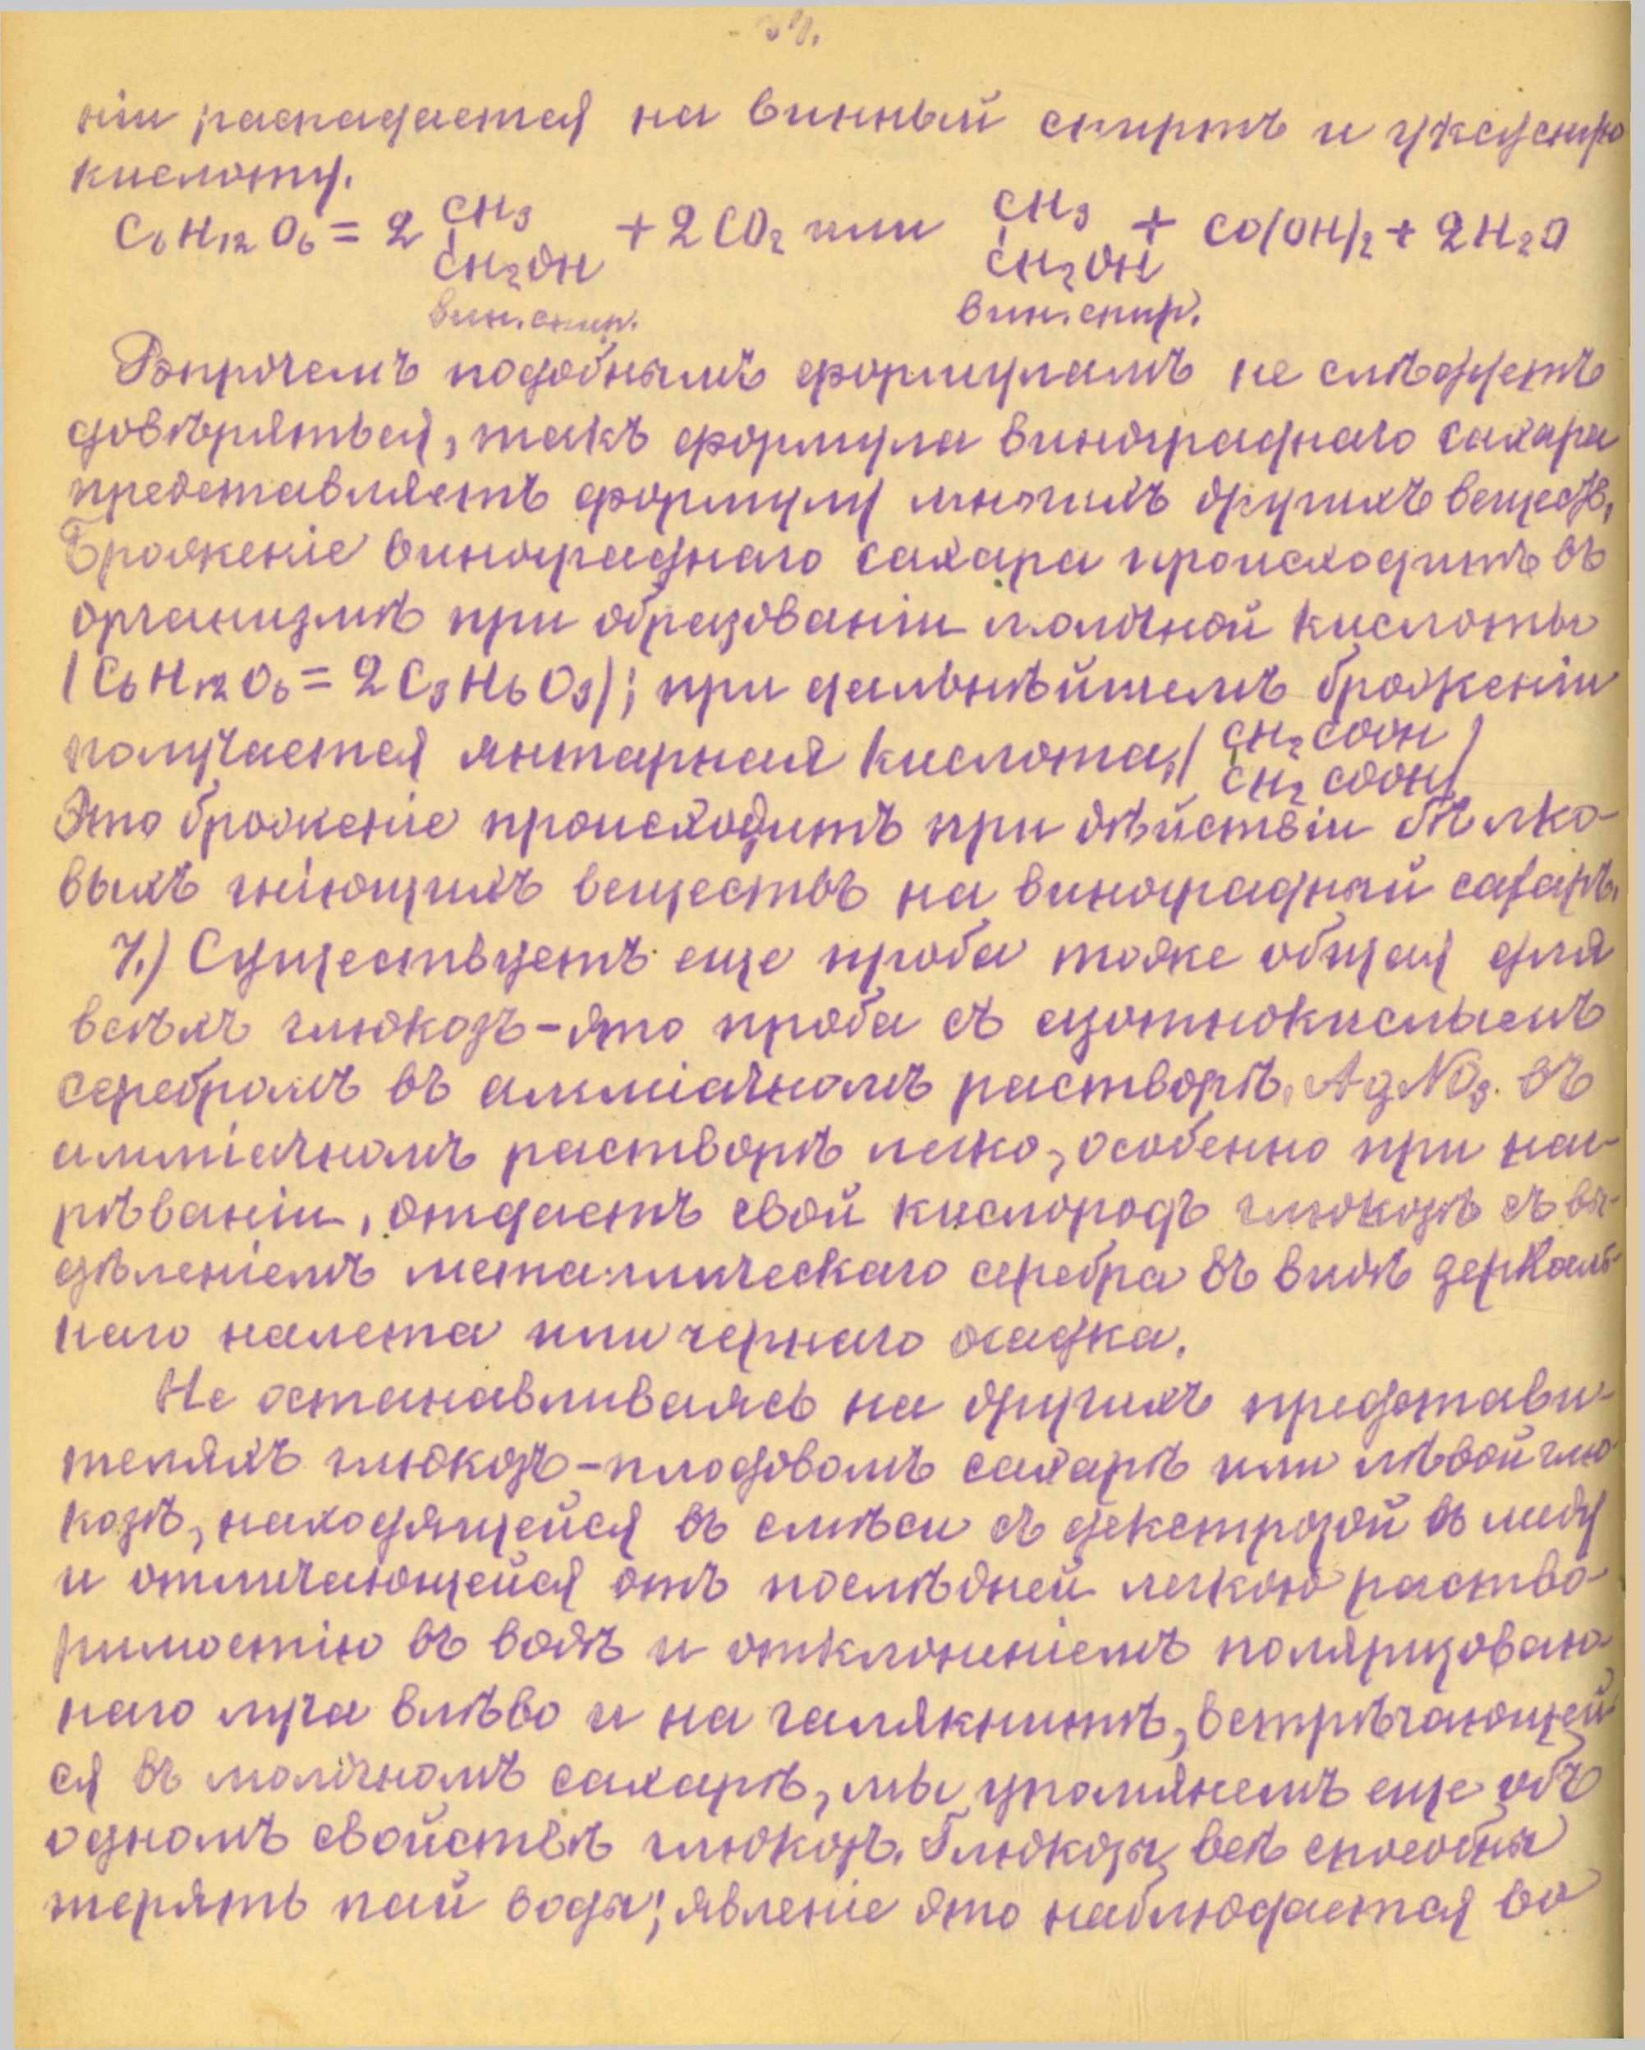 нiи распадается на винный спиртъ и уксусную
кислоту.
C6H12O6 = 2 CH3 + 2CO2 или CH3 + CO(OH)2 + 2H2O
CH2OH CH2OH
вин. спир. вин. спир.
Впрочемъ подобнымъ формуламъ не слѣдуетъ
довѣряться, такъ формула винограднаго сахара
представляетъ формулу многихъ другихъ веществ,
Броженiе винограднаго сахара происходитъ въ
организмѣ при образованiи молочной кислоты
(C6H12O6 = 2C3H6O3); при дальнѣйшемъ броженiи
получается янтарная кислота, (CH2COOH)
CH2COOH
Это броженiе происходитъ при дѣйствiи бѣлко-
выхъ гнiющихъ веществъ на виноградный сахаръ.
7.) Существуетъ еще проба тоже общая для
всѣхъ глюкозъ - это проба съ азотнокислымъ
серебромъ въ аммiачномъ растворѣ. AgNO3. въ
аммiачномъ растворѣ легко, особенно при наг-
рѣванiи, отдаетъ свой кислородъ глюкозѣ съ вы-
дѣленiемъ металлическаго серебра въ видѣ зеркаль-
наго налета или чернаго осадка.
Не останавливаясь на другихъ представи-
теляхъ глюкозъ - плодовомъ сахарѣ или лѣвой глю-
козѣ, находящейся въ смѣси съ декстрозой въ меду
и отличающейся отъ послѣдней легкою раство-
римостiю въ водѣ и отклоненiемъ поляризован-
наго луча влѣво и на встрѣчающей-
ся въ молочномъ сахарѣ, мы упомянемъ еще объ
одномъ свойствѣ глюкозъ. Глюкозы всѣ способны
терять пай воды; явленiе это наблюдается во